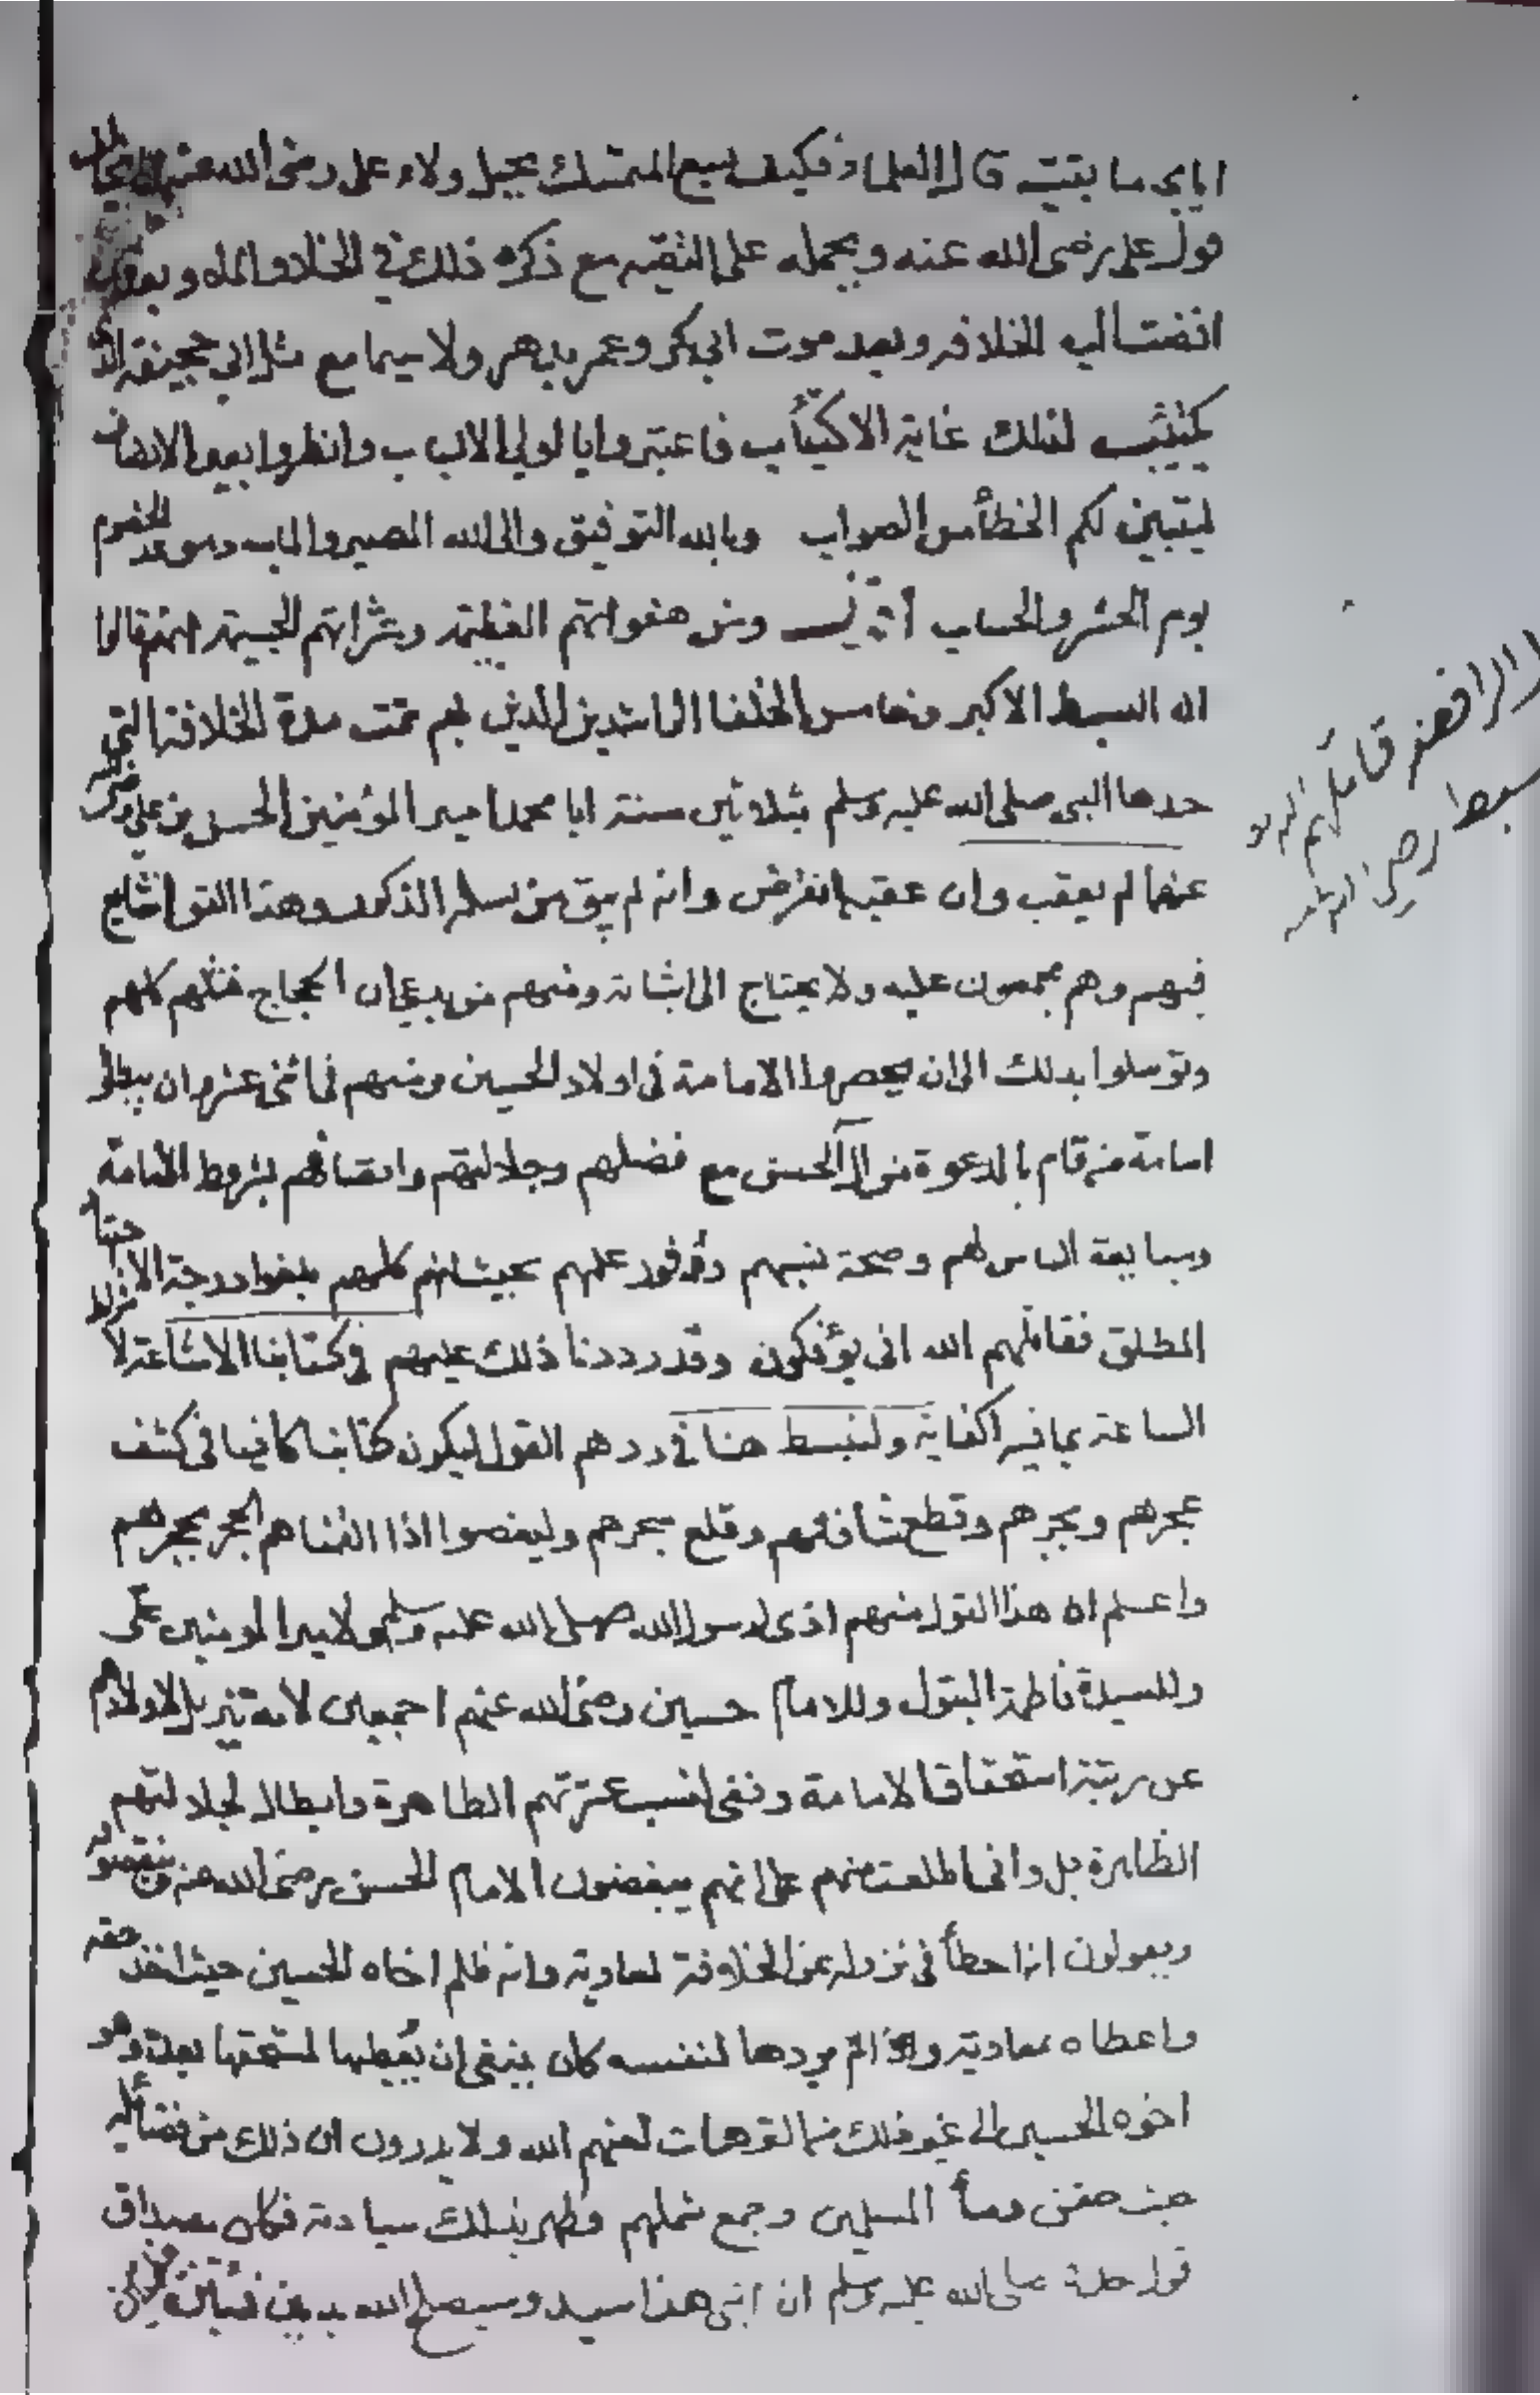 ابا بكر ما بقيت قال العلماء فكيف يسع المتمسك بحبل ولاء علي رضي الله عنه
قول علي رضي الله عنه ويحمله على التقيه مع ذكره ذلك في الخلا والملا وبعد
افضت اليه الخلافه وبعد موت ابي بكر وعمر بدهر ولا سيما مع مثل ابي جحيفة
يكتئب لذلك غاية الاكتئاب فاعتبروا يا اولي الالباب وانظروا بعين الانصاف
ليتبين لكم الخطأ من الصواب وبالله التوفيق والى الله المصير والماب وموعد الخصوم
يوم الحشر والحساب ومن هفواتهم العظيمة وعثراتهم الجسيمة انهم قالوا
ان السبط الاكبر وخامس الخلفا الراشدين الذين بهم تمت مدة الخلافة التي
حدها النبي صلى الله عليه وسلم بثلاثين سنة ابا محمد امير المؤمنين الحسن بن علي رضي الله
عنهما لم يعقب وان عقبه انقرض وانه لم يبق من نسله الذكور وهذا القول شايع
فيهم وهم مجمعون عليه ولا يحتاج الى اثباته ومنهم من يدعي ان الحجاج قتلهم كلهم
وتوسلوا بذلك الى ان يحصروا الامامة في اولاد الحسين ومنهم في اثنى عشر وان يبطلوا
امامة من قام بالدعوة من آل الحسن مع فضلهم وجلالتهم واتصافهم بشروط الامامة
ومبايعة الناس لهم وصحة نسبهم ووفور علمهم بحيث انهم كلهم بلغوا درجة الاجتهاد
المطلق فقاتلهم الله انى يؤفكون وقد رددنا ذلك عليهم في كتابنا الاشاعة لاشراط
الساعة بما فيه الكفاية ولنبسط هنا في ردهم القول ليكون كتابنا كافيا في كشف
عجرهم وبجرهم وقطع شافتهم وقلع وليغصوا اذا القمناهم الحجر بحجرهم
واعلم ان هذا القول منهم اذى لرسول الله صلى الله عليه وسلم ولامير المومنين علي
وللسيدة فاطمة البتول وللامام حسين رضي الله عنهم اجمعين لانه تنزيل لاولادهم
عن رتبة استحقاق الامامة ونفي لنسب عترتهم الطاهرة وابطال لجلالتهم
الظاهرة بل واني اطلعت منهم على انهم يبغضون الامام الحسن رضي الله عنه وينقصونه
ويقولون انه اخطأ في نزوله عن الخلافة لمعاوية وانه ظلم اخاه الحسين حيث اخذ حقه
واعطاه معاوية واذا لم يردها لنفسه كان ينبغي ان يعطيها لمستحقها بعده وهو
اخوه الحسين الى غير ذلك من الترهات لعنهم الله ولا يدرون ان ذلك من فضائله
حيث حقن دماء المسلمين وجمع شملهم وظهر بذلك سيادته فكان مصداق
قول جده صلى الله عليه وسلم ان ابني هذا سيد وسيصلح الله به بين فئتين
الرافضة قاتلهم الله
سبط رضي الله عنه